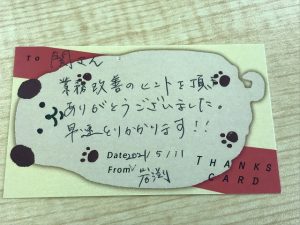 TO 関さん
業務改善のヒントを頂き
ありがとうございました。
早速とりかかります!!
Date 2021/5/11
From 岩渕
THANKS
CARD